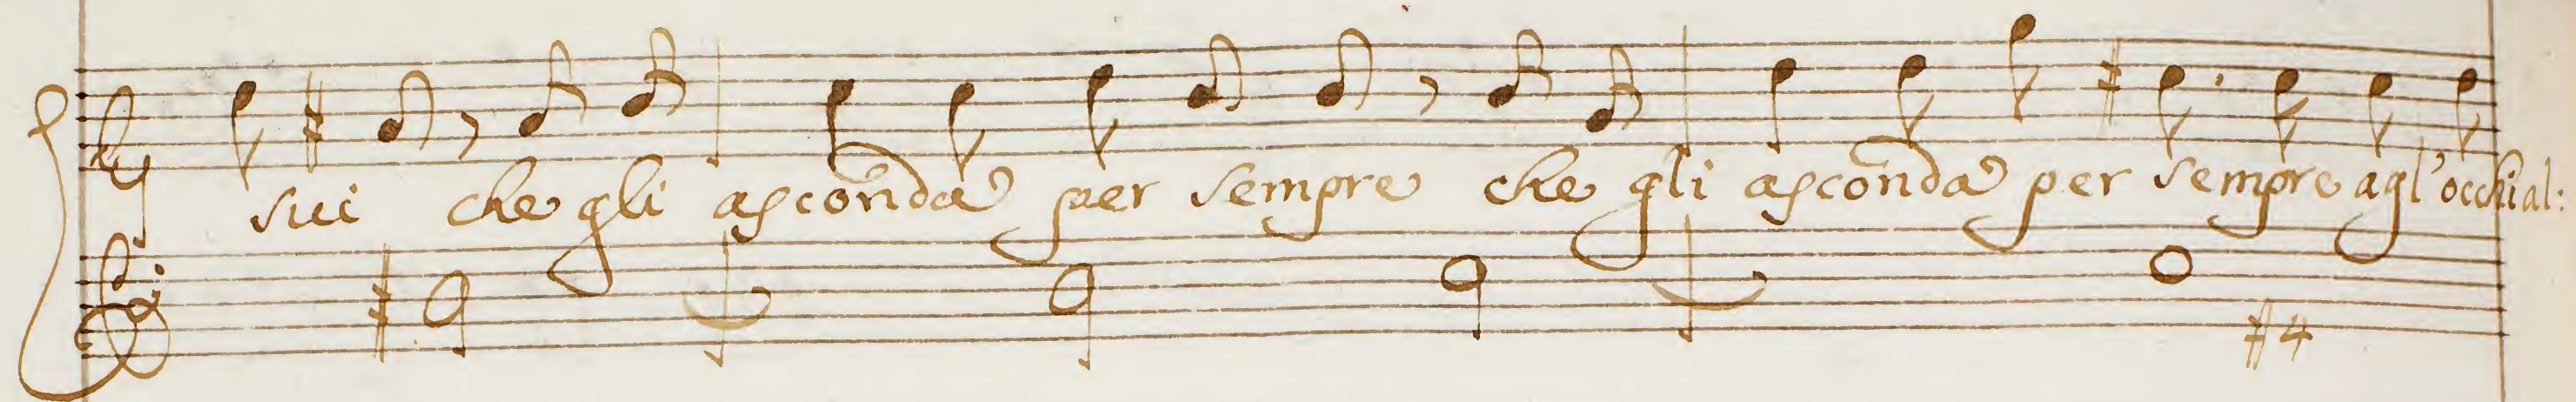 sui che gli asconda per sempre che gli asconda per sempre agl'occhi al:
#4